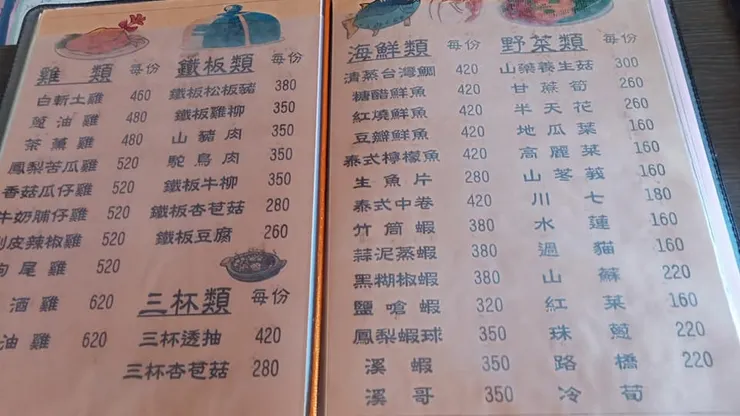 雞類 每份
白斬土雞 460
蔥油雞 480
茶薰雞 480
鳳梨苦瓜雞 520
香菇瓜仔雞 520
牛奶脯仔雞 520
剝皮辣椒雞 520
尾雞 520
酒雞 620
油雞 620
鐵板類 每份
鐵板松板豬 380
鐵板雞柳 350
山豬肉 350
鴕鳥肉 350
鐵板牛柳 350
鐵板杏苞菇 280
鐵板豆腐 260
三杯類 每份
三杯透抽 420
三杯杏苞菇 280
海鮮類 每份
清蒸台灣鯛 420
糖醋鮮魚 420
紅燒鮮魚 420
豆瓣鮮魚 420
泰式檸檬魚 420
生魚片 280
泰式中卷 420
竹筒蝦 380
蒜泥蒸蝦 380
黑糊椒蝦 380
鹽嗆蝦 320
鳳梨蝦球 350
溪蝦 350
溪哥 350
野菜類 每份
山藥養生菇 300
甘蔗筍 260
半天花 260
地瓜葉 160
高麗菜 160
山茗莪 160
川七 180
水蓮 160
過貓 160
山蘇 220
紅菜 160
珠蔥 220
路橋 220
冷筍